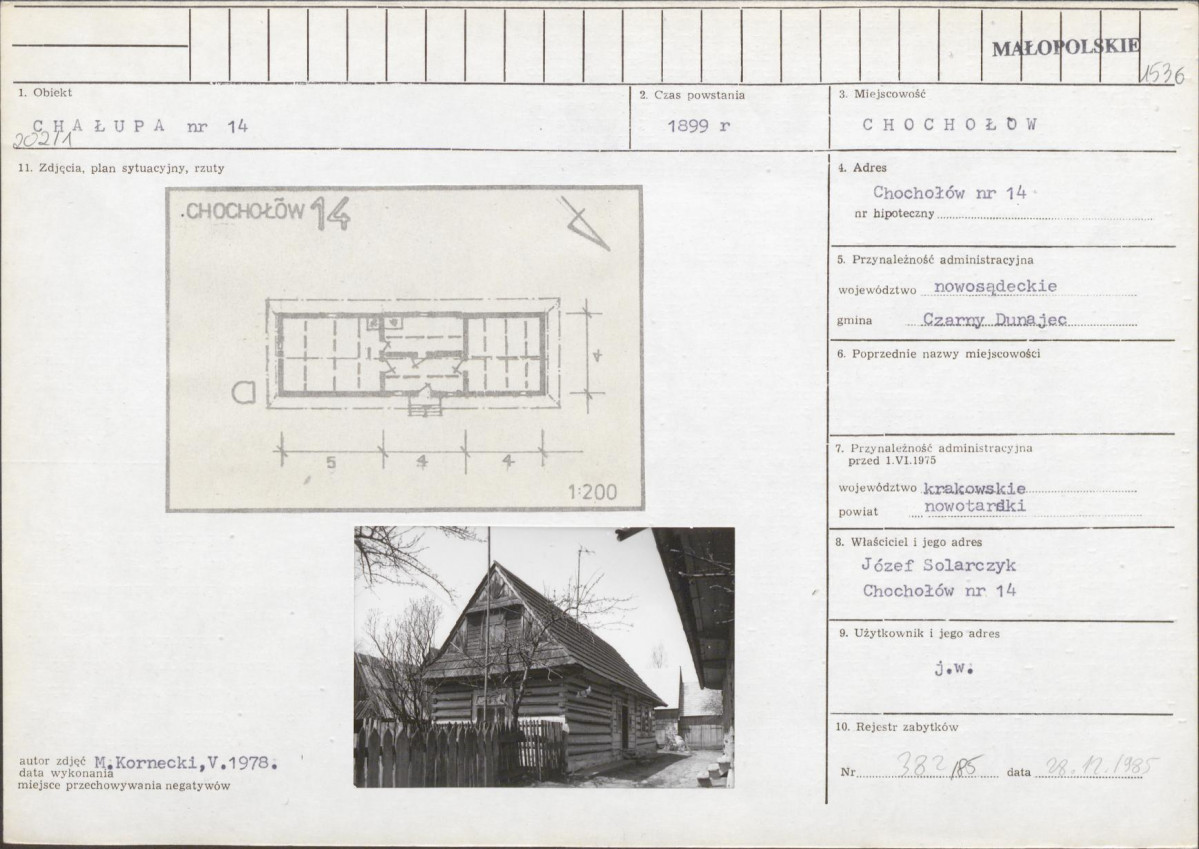 MAŁOPOLSKIE
1536
1. Obiekt
CHAŁUPA nr 14
202/1
2. Czas powstania
1899 r
3. Miejscowość
CHOCHOŁÓW
11. Zdjęcia, plan sytuacyjny, rzuty
CHOCHOŁÓW 14
5 4 4
4
1:200
autor zdjęć M.Kornecki,V.1978.
data wykonania
miejsce przechowywania negatywów
4. Adres
Chochołów nr 14
nr hipoteczny
5. Przynależność administracyjna
województwo nowosądeckie
gmina Czarny Dunajec
6. Poprzednie nazwy miejscowości
7. Przynależność administracyjna
przed 1.VI.1975
województwo krakowskie
powiat nowotarski
8. Właściciel i jego adres
Józef Solarczyk
Chochołów nr 14
9. Użytkownik i jego adres
j.w.
10. Rejestr zabytków
Nr 382/85 data 28.12.1985